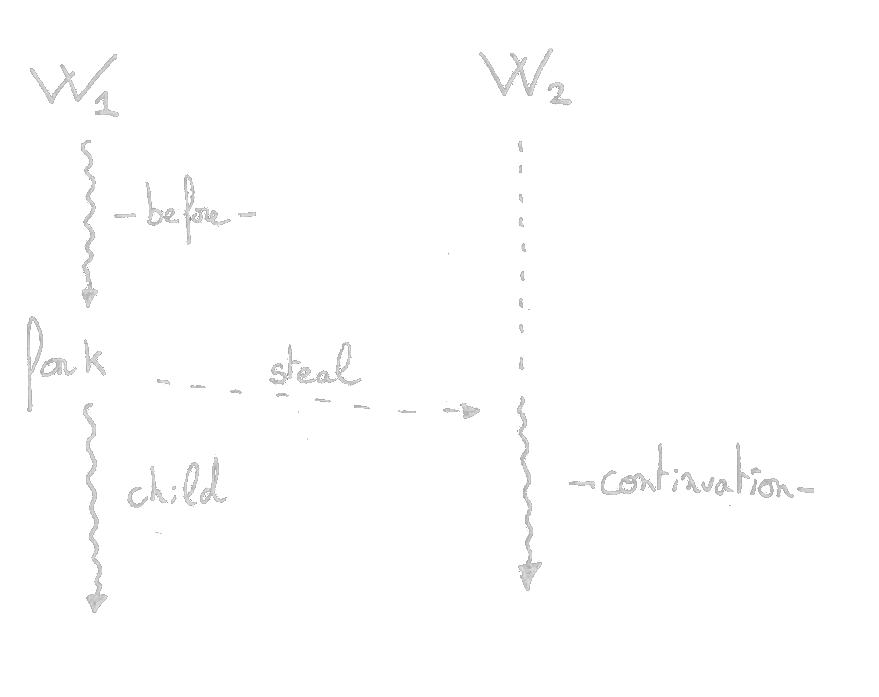 W1
W2
-before-
fork
steal
child
-continuation-